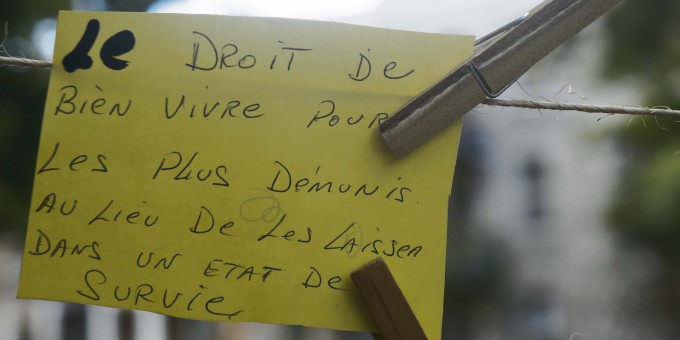 Le DROIT DE
BIEN VIVRE POUR
LES PLUS DÉMUNIS
AU LIEU DE LES LAISSER
DANS UN ETAT DE
SURVIE